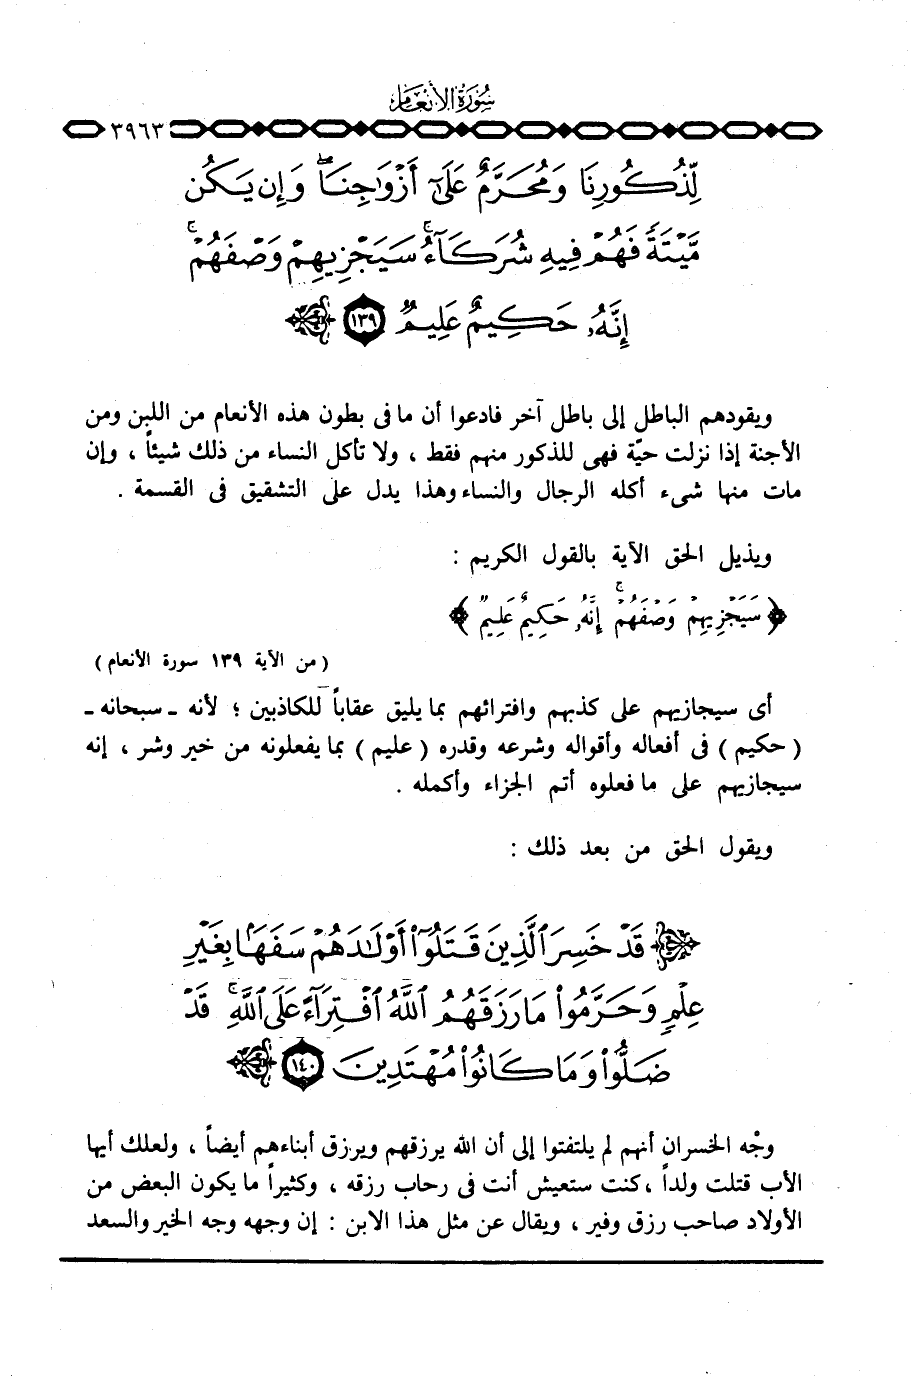 سُورَةُ الأَنْعَام
٣٩٦٣
لِّذُكُورِنَا وَمُحَرَّمٌ عَلَىٰٓ أَزْوَٰجِنَا ۖ وَإِن يَكُن
مَّيْتَةً فَهُمْ فِيهِ شُرَكَآءُ ۚ سَيَجْزِيهِمْ وَصْفَهُمْ ۚ
إِنَّهُۥ حَكِيمٌ عَلِيمٌ ١٣٩
ويقودهم الباطل إلى باطل آخر فادعوا أن ما فى بطون هذه الأنعام من اللبن ومن
الأجنة إذا نزلت حيّة فهى للذكور منهم فقط ، ولا تأكل النساء من ذلك شيئاً ، وإن
مات منها شىء أكله الرجال والنساء وهذا يدل على التشقيق فى القسمة .
ويذيل الحق الآية بالقول الكريم :
﴿ سَيَجْزِيهِمْ وَصْفَهُمْ ۚ إِنَّهُۥ حَكِيمٌ عَلِيمٌ ﴾
( من الآية ١٣٩ سورة الأنعام )
أى سيجازيهم على كذبهم وافترائهم بما يليق عقاباً للكاذبين ؛ لأنه ـ سبحانه ـ
( حكيم ) فى أفعاله وأقواله وشرعه وقدره ( عليم ) بما يفعلونه من خير وشر ، إنه
سيجازيهم على ما فعلوه أتم الجزاء وأكمله .
ويقول الحق من بعد ذلك :
قَدْ خَسِرَ ٱلَّذِينَ قَتَلُوٓا۟ أَوْلَٰدَهُمْ سَفَهًۢا بِغَيْرِ
عِلْمٍ وَحَرَّمُوا۟ مَا رَزَقَهُمُ ٱللَّهُ ٱفْتِرَآءً عَلَى ٱللَّهِ ۚ قَدْ
ضَلُّوا۟ وَمَا كَانُوا۟ مُهْتَدِينَ ١٤٠
وجْه الخسران أنهم لم يلتفتوا إلى أن الله يرزقهم ويرزق أبناءهم أيضاً ، ولعلك أيها
الأب قتلت ولداً ، كنت ستعيش أنت فى رحاب رزقه ، وكثيراً ما يكون البعض من
الأولاد صاحب رزق وفير ، ويقال عن مثل هذا الابن : إن وجهه وجه الخير والسعد